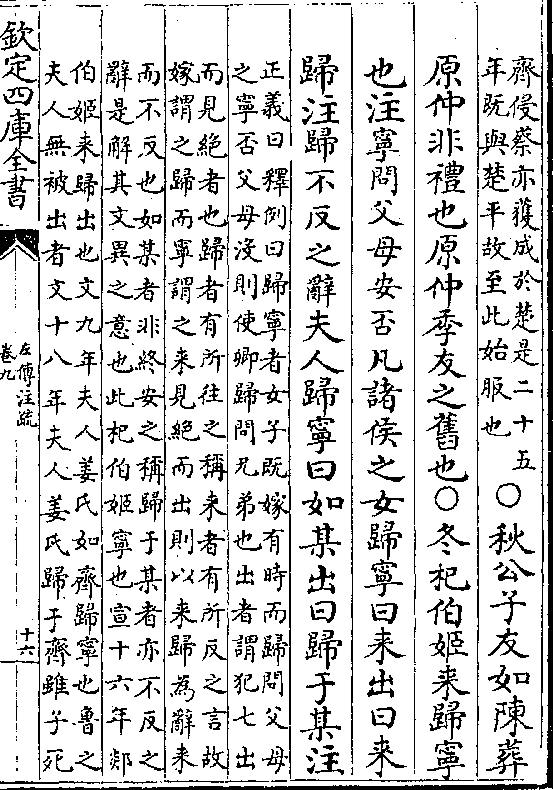 齊侵蔡亦獲成於楚是二十五
年既與楚平故至此始服也
○秋公子友如陳葬
原仲非禮也原仲季友之舊也○冬杞伯姬来歸寧
也注寧問父母安否凡諸侯之女歸寧曰来出曰来
歸注歸不反之辭夫人歸寧曰如某出曰歸于某注
正義曰釋例曰歸寧者女子既嫁有時而歸問父母
之寧否父母没則使卿歸問兄弟也出者謂犯七出
而見絶者也歸者有所往之稱来者有所反之言故
嫁謂之歸而寧謂之来見絶而出則以来歸為辭来
而不反也如某者非終安之稱歸于某者亦不反之
辭是解其文異之意也此杞伯姬寧也宣十六年郯
伯姬来歸出也文九年夫人姜氏如齊歸寧也魯之
夫人無被出者文十八年夫人姜氏歸于齊雖子死
欽定四庫全書
左傳注疏
卷九
十六